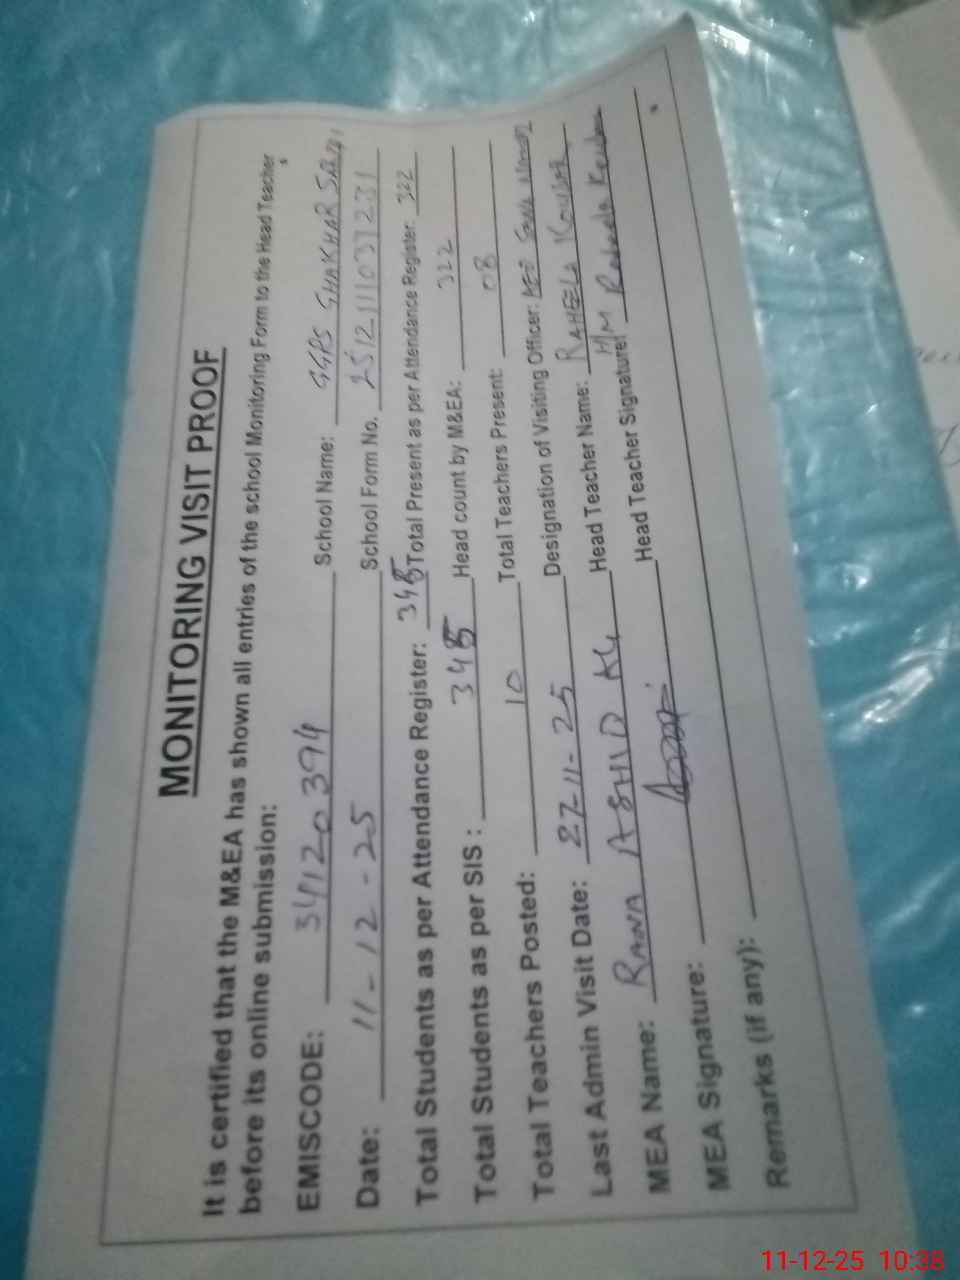 MONITORING VISIT PROOF
It is certified that the M&EA has shown all entries of the school Monitoring Form to the Head Teacher
before its online submission:
EMISCODE: 34120394 School Name: GGPS GHAKHAR
Date: 11-12-25 School Form No. 2512111037231
Total Students as per Attendance Register: 345 Total Present as per Attendance Register: 322
Total Students as per SIS : 345 Head count by M&EA: 322
Total Teachers Posted: 10 Total Teachers Present: 08
Last Admin Visit Date: 27-11-25 Designation of Visiting Officer: AEO
MEA Name: RANA ASHID Ali Head Teacher Name: RAHEELA KOUSAR
MEA Signature: Head Teacher Signature: H/M Raheela Kousar
Remarks (if any):
11-12-25 10:38